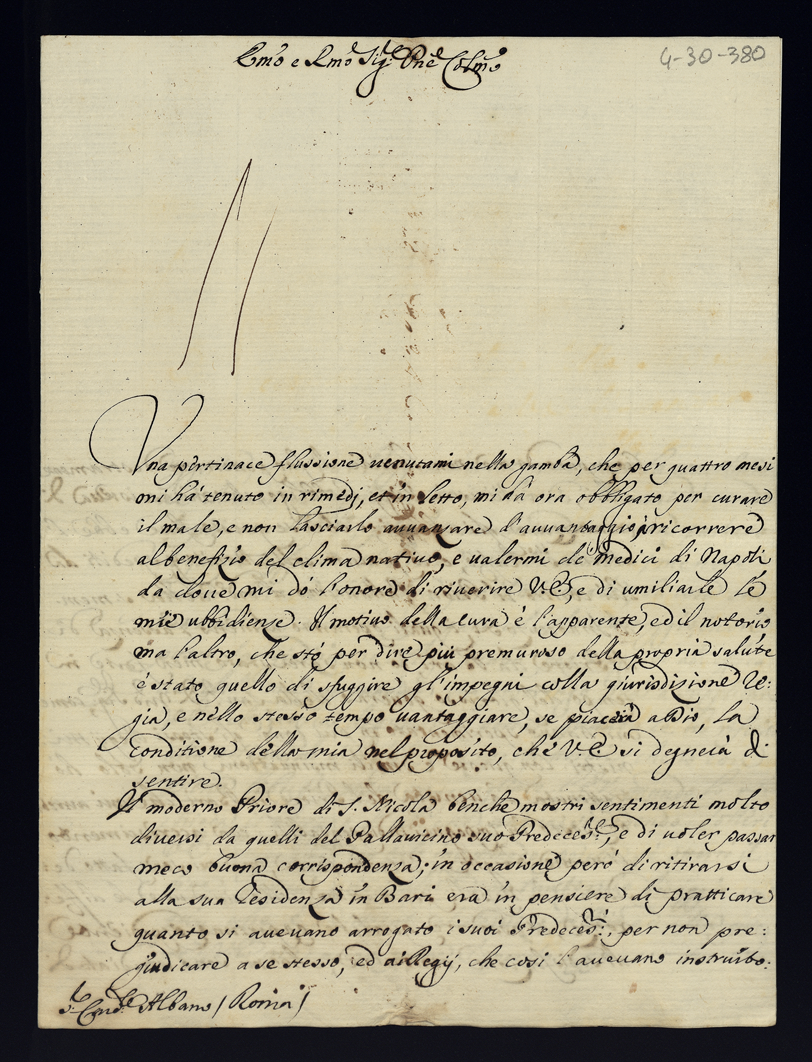 Emo e Rmo Sig.r Pne Colmo
4-30-380
Una pertinace flussione venutami nella gamba, che per quattro mesi
mi há tenuto in rimedj, et in letto, mi dà ora obbligato per curare
il male, e non lasciarlo avvanzare d'avvantaggio à ricorrere
al benefizio del clima nativo, e valermi de' medici di Napoli
da dove mi dó l'onore di riverire V.E., e di umiliarle le
mie ubbidienze. Il motivo della cura è l'apparente, ed il notorio
ma l'altro, che stó per dire più premuroso della propria salute
è stato quello di sfuggire gl'impegni colla giurisdizione Re:
gia, e nello stesso tempo vantaggiare, se piacerà a Dio, la
conditione della mia nel proposito, che V.E. si degnerà di
sentire.
Il moderno Priore di S. Nicola benche mostri sentimenti molto
diversi da quelli del Pallavicino suo Predeces.re, e di voler passar
meco buona corrispondenza; in occasione però di ritirarsi
alla sua residenza in Bari era in pensiere di pratticare
quanto si avevano arrogato i suoi Predeces.ri, per non pre:
giudicare a se stesso, ed ai Regij, che cosi l'avevano instruito.
S.r Card.le Albano / Roma /